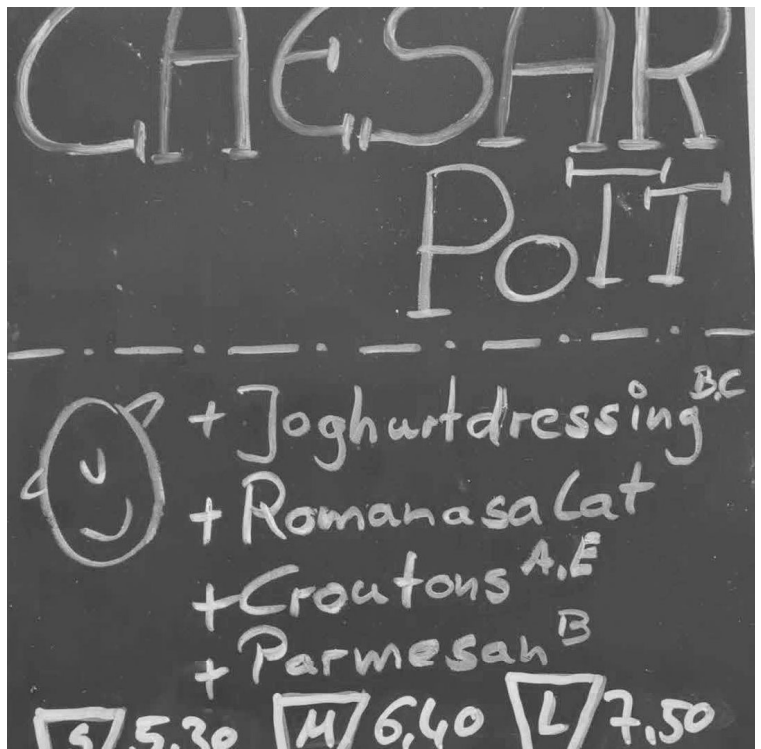 CAESAR
POTT
+ Joghurtdressing B,C
+ Romanasalat
+ Croutons A,E
+ Parmesan B
S 5,30 M 6,40 L 7,50